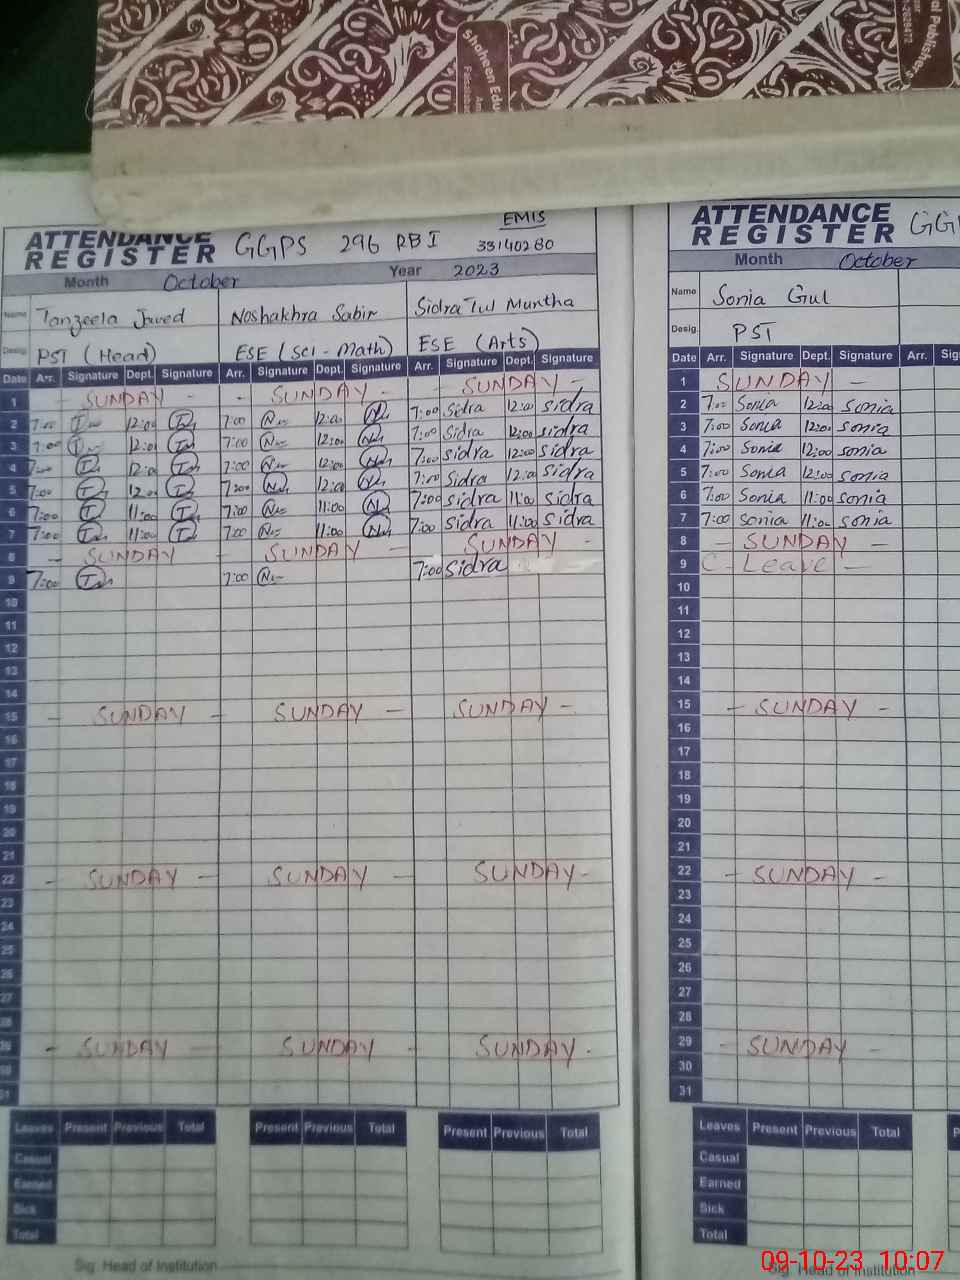 Shaheen Edu
Faisalabad
al Publishers
ATTENDANCE REGISTER GGPS 296 RB I EMIS 33140280
Month October Year 2023
Name Tanzeela Javed Noshakhra Sabir Sidra Tul Muntha
Desig. PST (Head) ESE (Sci - Math) ESE (Arts)
Date Arr. Signature Dept. Signature Arr. Signature Dept. Signature Arr. Signature Dept. Signature
1 - SUNDAY - - SUNDAY - SUNDAY -
2 7:00 12:00 7:00 12:00 7:00 Sidra 12:00 sidra
3 7:00 12:00 7:00 12:00 7:00 Sidra 12:00 sidra
4 7:00 12:00 7:00 12:00 7:00 sidra 12:00 sidra
5 7:00 12:00 7:00 12:00 7:00 Sidra 12:00 sidra
6 7:00 11:00 7:00 11:00 7:00 sidra 11:00 sidra
7 7:00 11:00 7:00 11:00 7:00 sidra 11:00 sidra
8 - SUNDAY - SUNDAY - SUNDAY -
9 7:00 7:00 7:00 sidra
10
11
12
13
14
15 - SUNDAY - SUNDAY - SUNDAY -
16
17
18
19
20
21
22 - SUNDAY - SUNDAY - SUNDAY -
23
24
25
26
27
28
29 - SUNDAY - SUNDAY - SUNDAY -
30
31
Leaves Present Previous Total Present Previous Total Present Previous Total
Casual
Earned
Sick
Total
Sig. Head of Institution
ATTENDANCE REGISTER
Month October
Name Sonia Gul
Desig. PST
Date Arr. Signature Dept. Signature Arr.
1 SUNDAY -
2 7:00 Sonia 12:00 sonia
3 7:00 Sonia 12:00 sonia
4 7:00 Sonia 12:00 sonia
5 7:00 Sonia 12:00 sonia
6 7:00 Sonia 11:00 sonia
7 7:00 sonia 11:00 sonia
8 - SUNDAY -
9 C - Leave -
10
11
12
13
14
15 - SUNDAY -
16
17
18
19
20
21
22 - SUNDAY -
23
24
25
26
27
28
29 - SUNDAY -
30
31
Leaves Present Previous Total
Casual
Earned
Sick
Total
Sig. Head of Institution
09-10-23 10:07